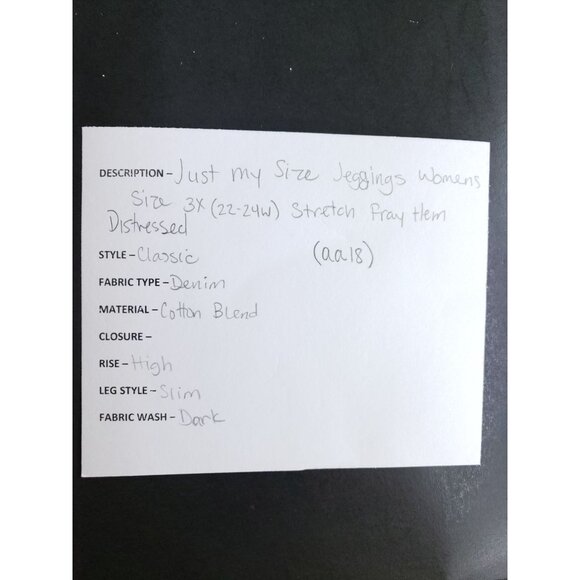 DESCRIPTION – Just my Size Jeggings Womens
Size 3X (22-24W) Stretch Fray Hem
Distressed
STYLE – Classic (aa18)
FABRIC TYPE – Denim
MATERIAL – Cotton Blend
CLOSURE –
RISE – High
LEG STYLE – Slim
FABRIC WASH – Dark